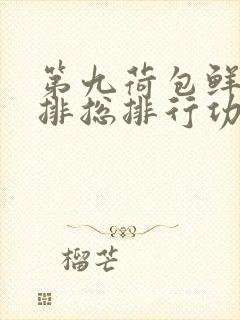 第九荷包鲜
排总排行功
榴芒